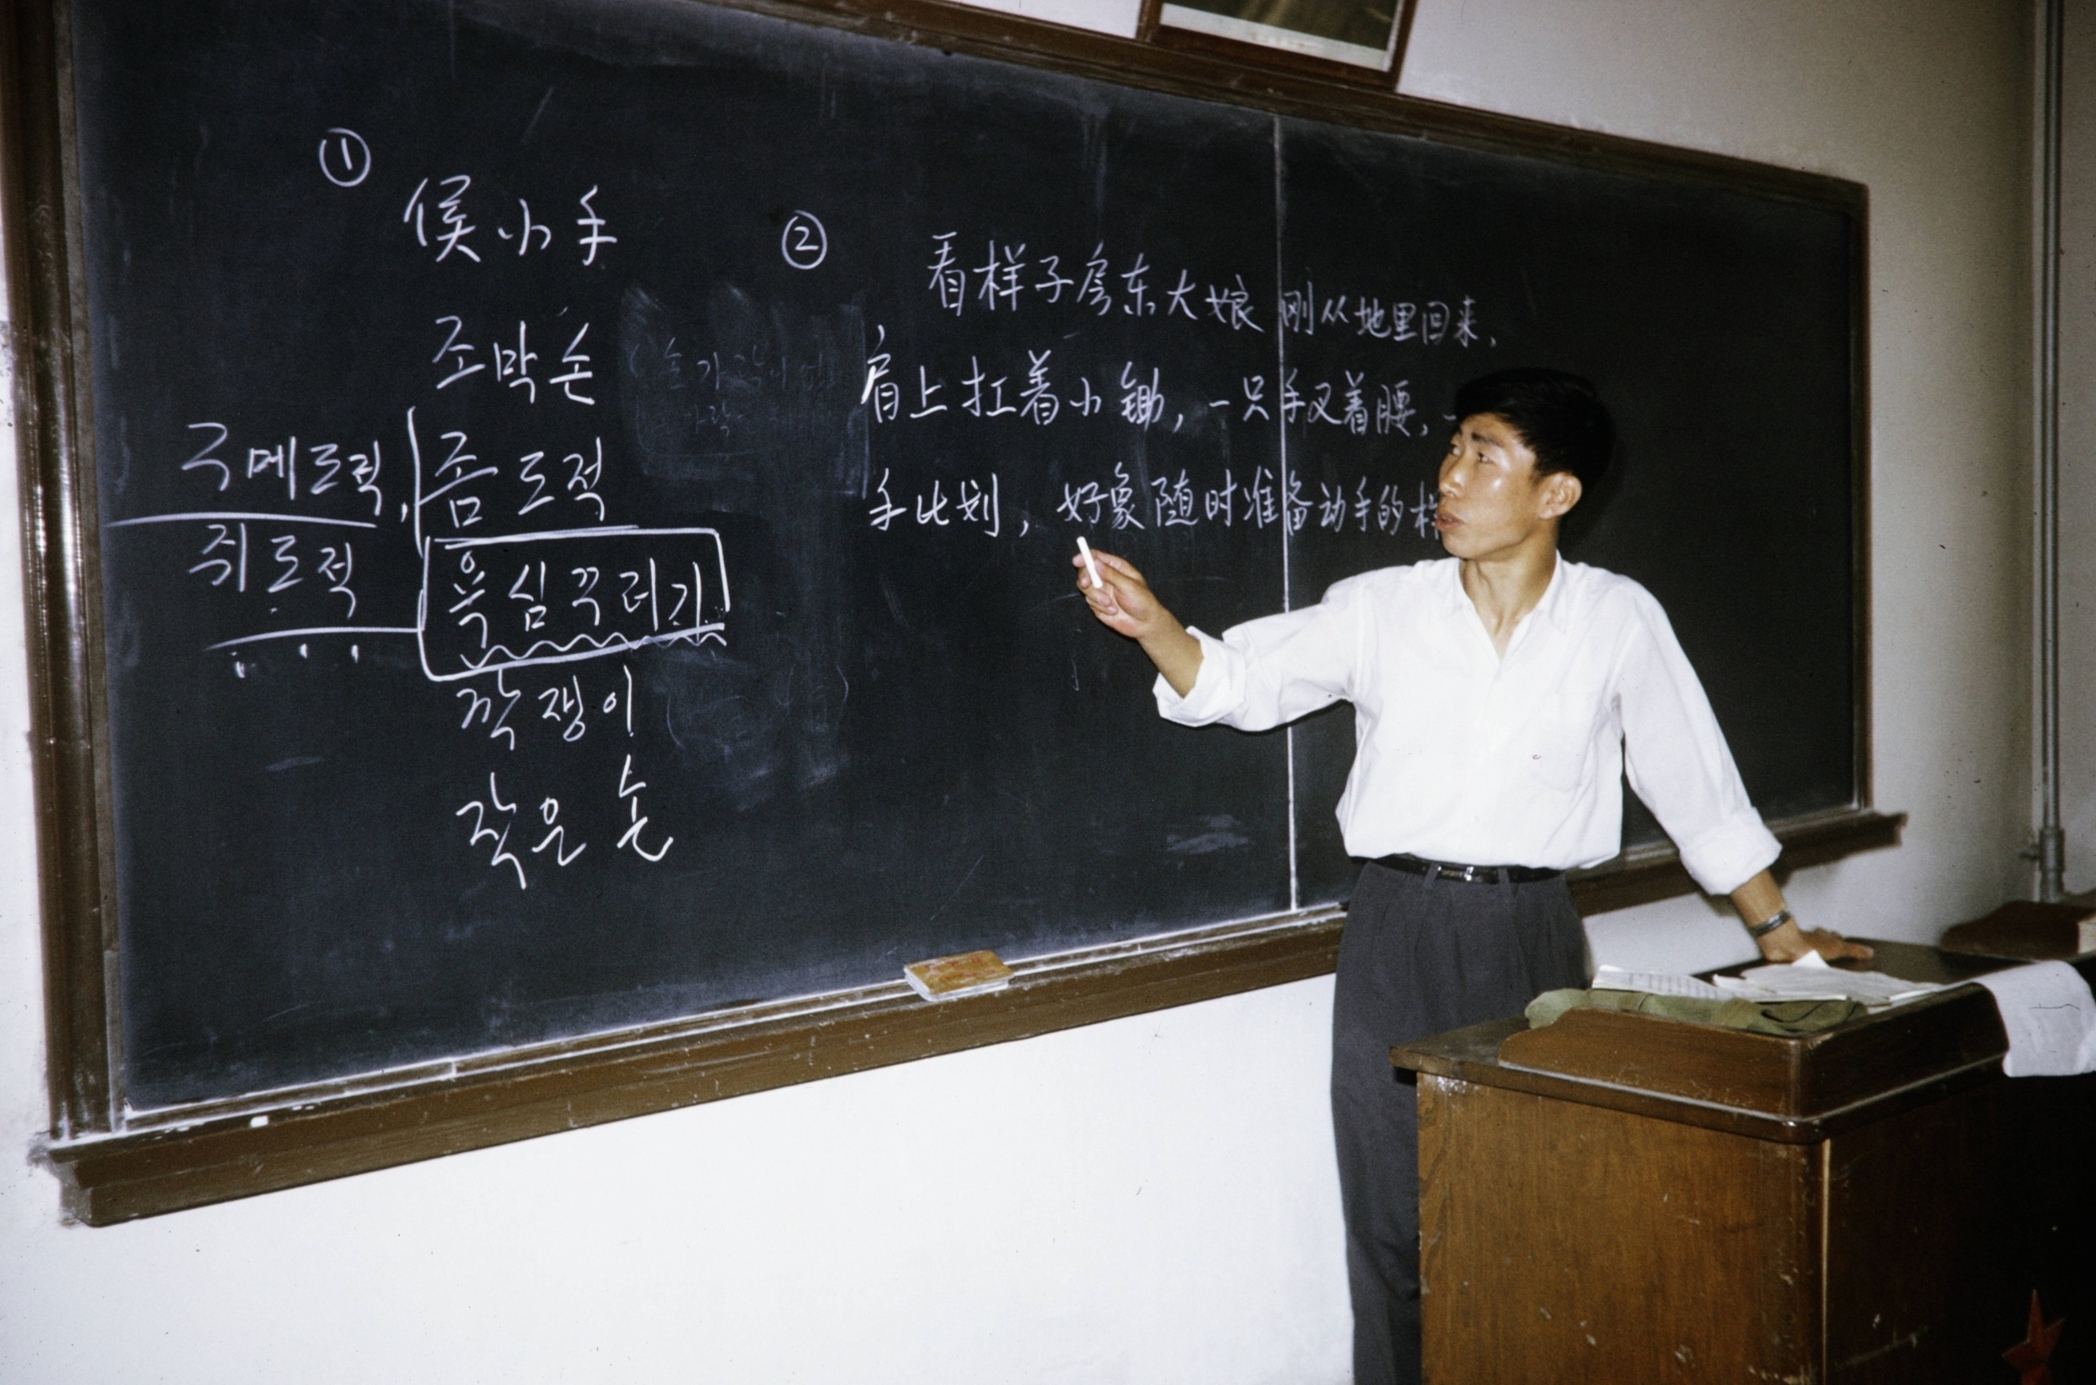 ①
侯小手
조막손
구메도적,
좀도적
쥐도적
욕심꾸러기
깍쟁이
작은 손
②
看样子房东大娘刚从地里回来,
肩上扛着小锄,一只手叉着腰,一
手比划,好象随时准备动手的样